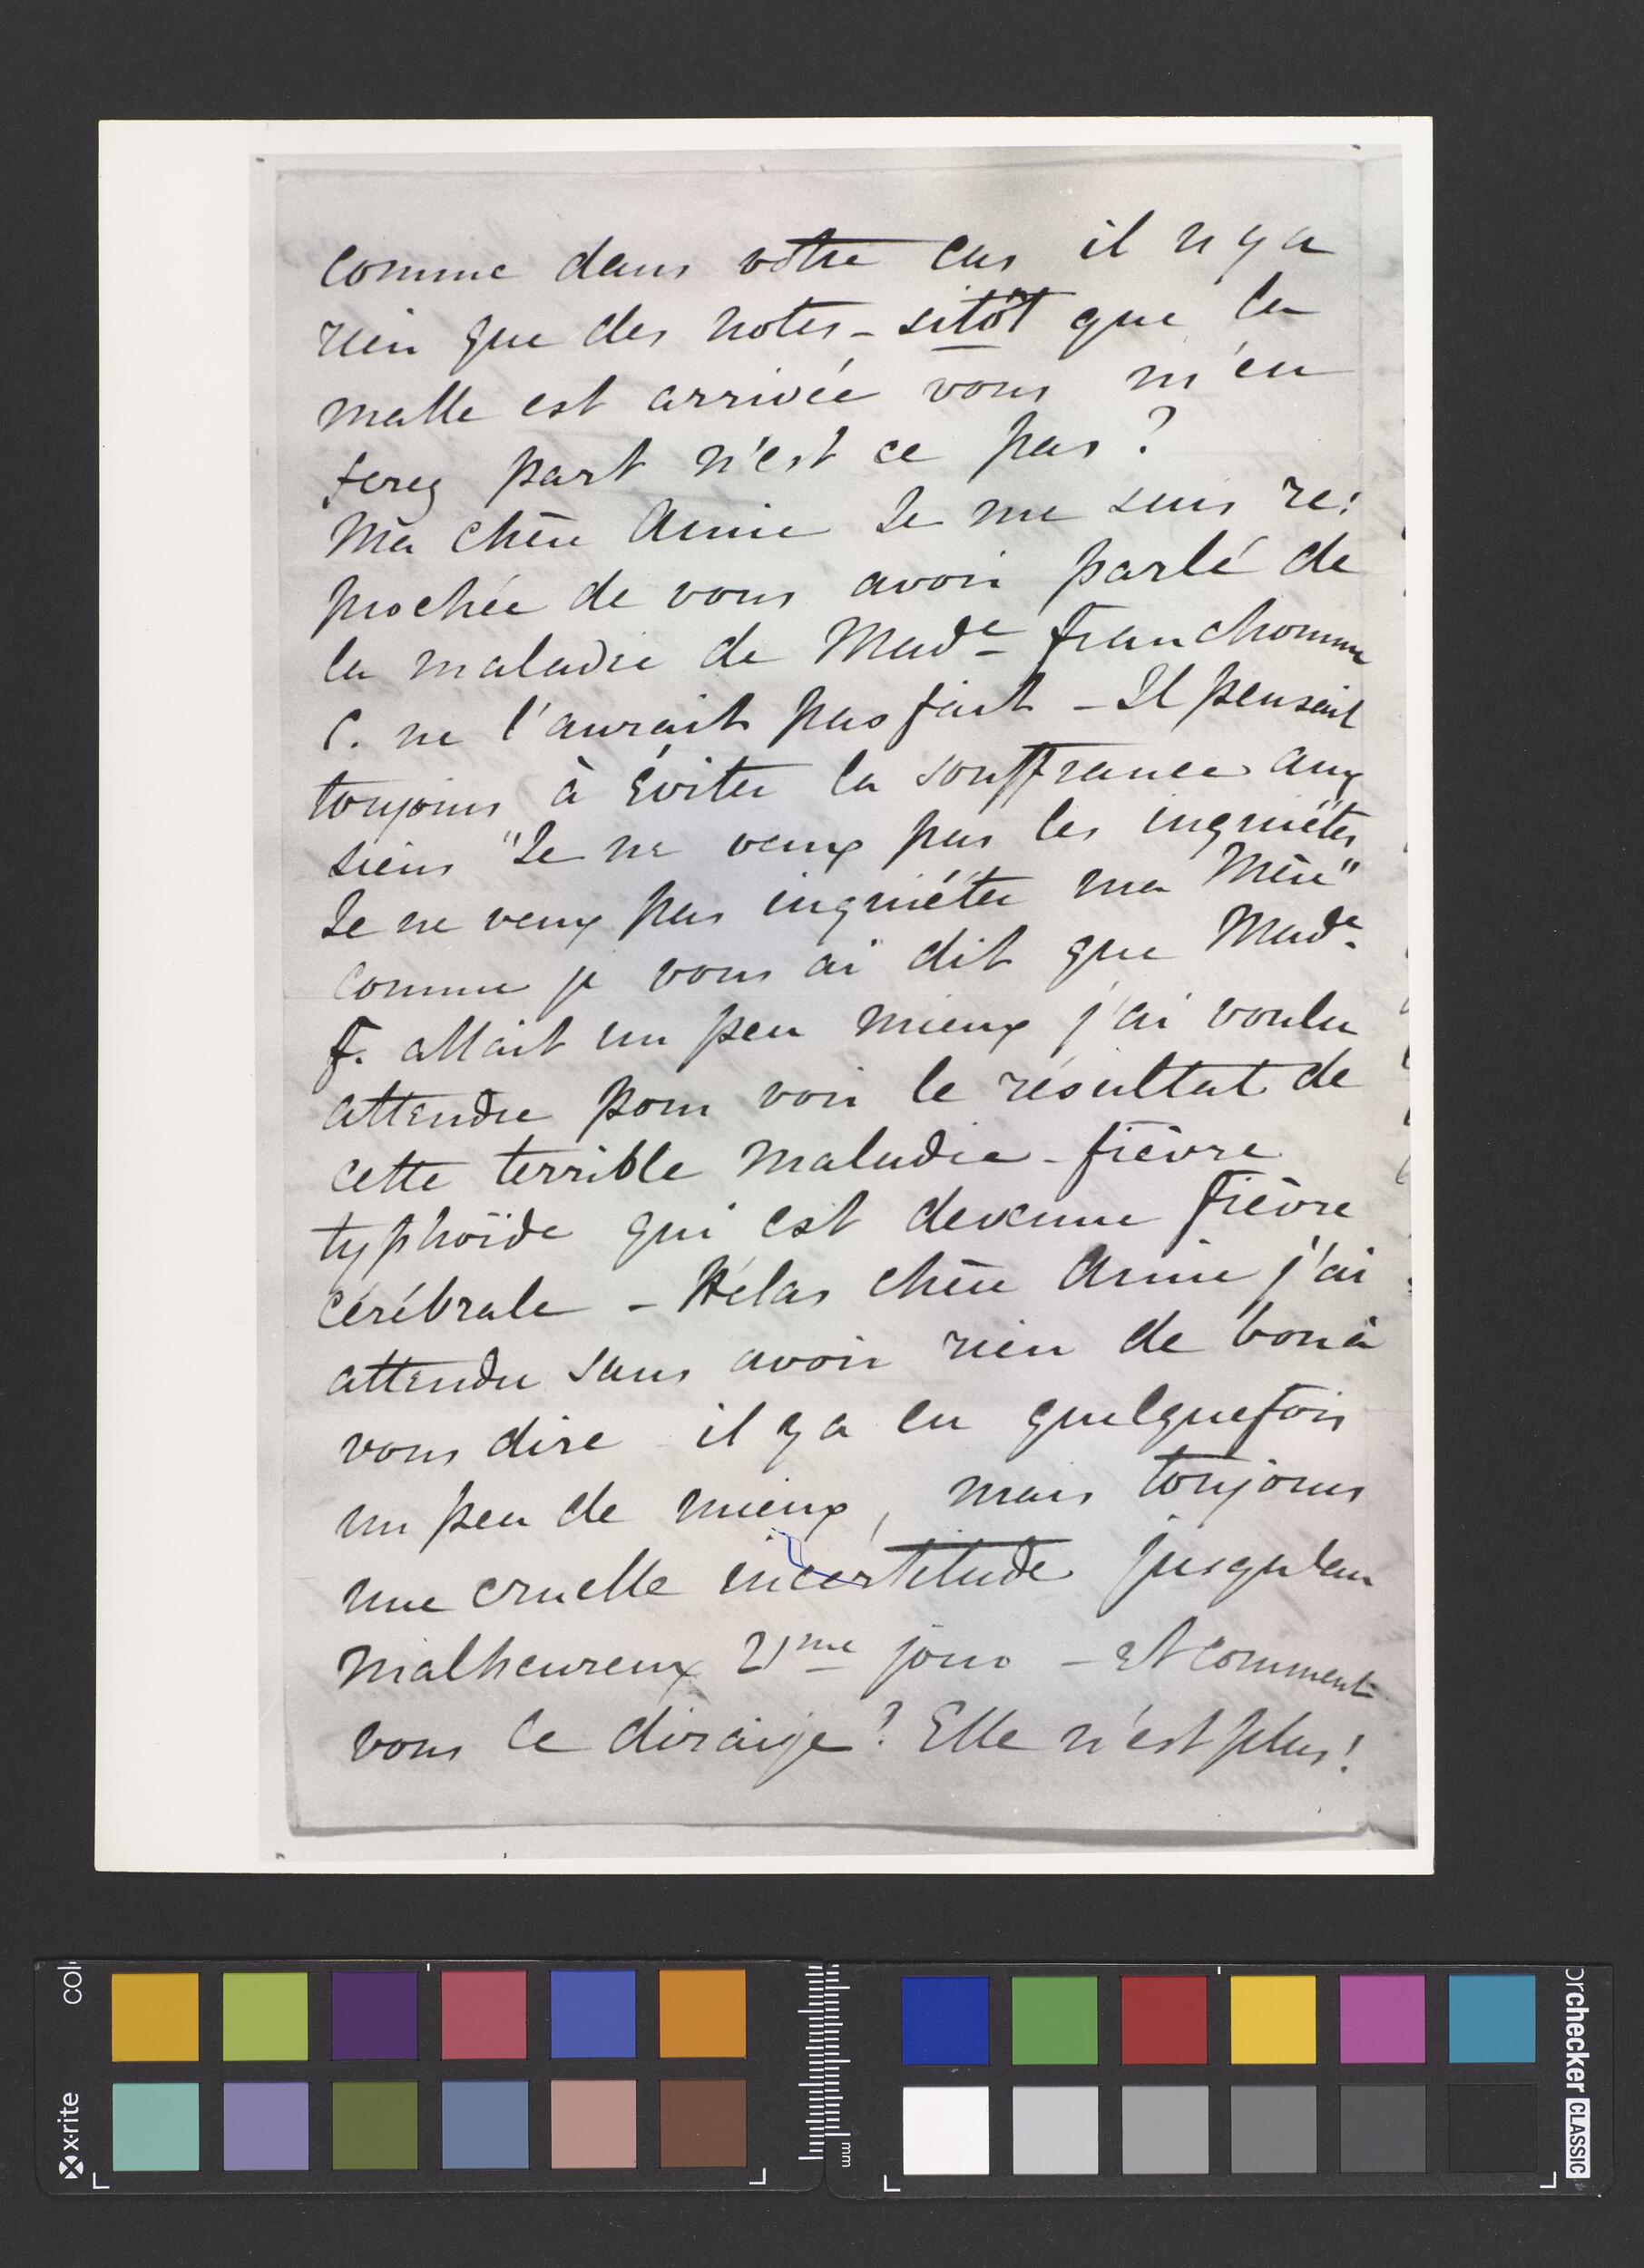 comme dans vôtre cas il n'y a
rien que des notes – sitôt que la
malle est arrivée vous m'en
ferez part n'est ce pas ?
Ma chère Amie Je me suis re:
prochée de vous avoir parlé de
la maladie de Made Franchomme
C. ne l'aurait pas fait – Il pensait
toujours à éviter la souffrance aux
siens "Je ne veux pas les inquiéter
Je ne veux pas inquiéter ma Mère"
comme je vous ai dit que Made.
F. allait un peu mieux j'ai voulu
attendre pour voir le résultat de
cette terrible maladie – fièvre
typhoïde qui est devenue fièvre
cérébrale – Hélas chère Amie j'ai
attendu sans avoir rien de bon à
vous dire il y a eu quelquefois
un peu de mieux, mais toujours
une cruelle incertitude jusqu'au
malheureux 21me jour – Et comment
vous le diraije ? Elle n'est plus !
col
x-rite
mm
orchecker CLASSIC